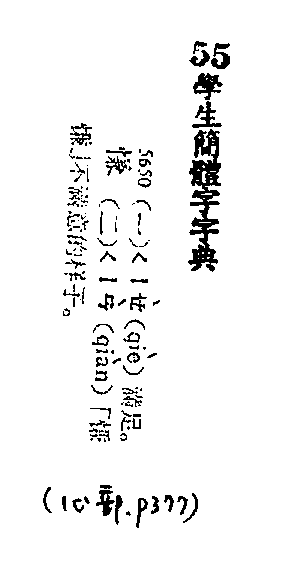 55學生簡體字字典
5650 (一)ㄑㄧㄝˋ(qiè)滿足。
慊 (二)ㄑㄧㄢˋ(qiàn)「慊
慊」不滿意的样子。
(心部.p377)